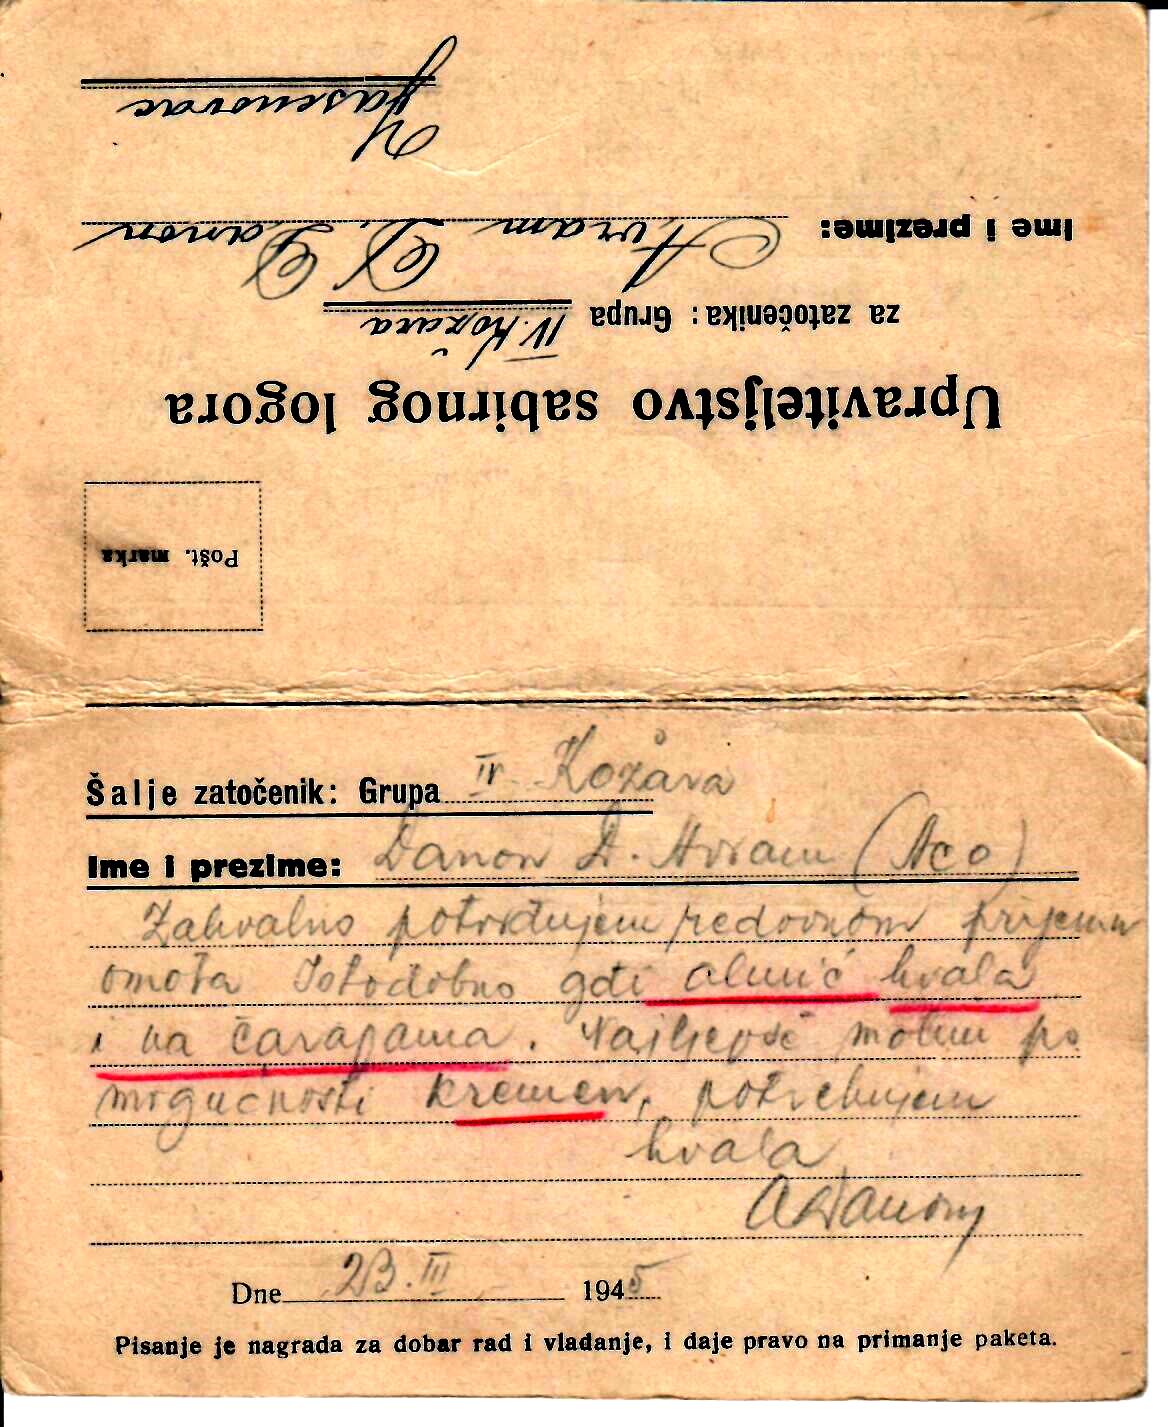 Jasenovac
Ime i prezime: Avram D. Danon
za zatočenika: Grupa IV. Kožara
Upraviteljstvo sabirnog logora
Pošt. marka
Šalje zatočenik: Grupa IV. Kožara
Ime i prezime: Danon D. Avram (Aco)
Zahvalno potvrđujem redovnom prijemu
omota Istodobno gđi hvala
i na čarapama. Najljepše molim po
mogućnosti kremen, potrebujem
hvala
ADanon
Dne 23. III 1945
Pisanje je nagrada za dobar rad i vladanje, i daje pravo na primanje paketa.